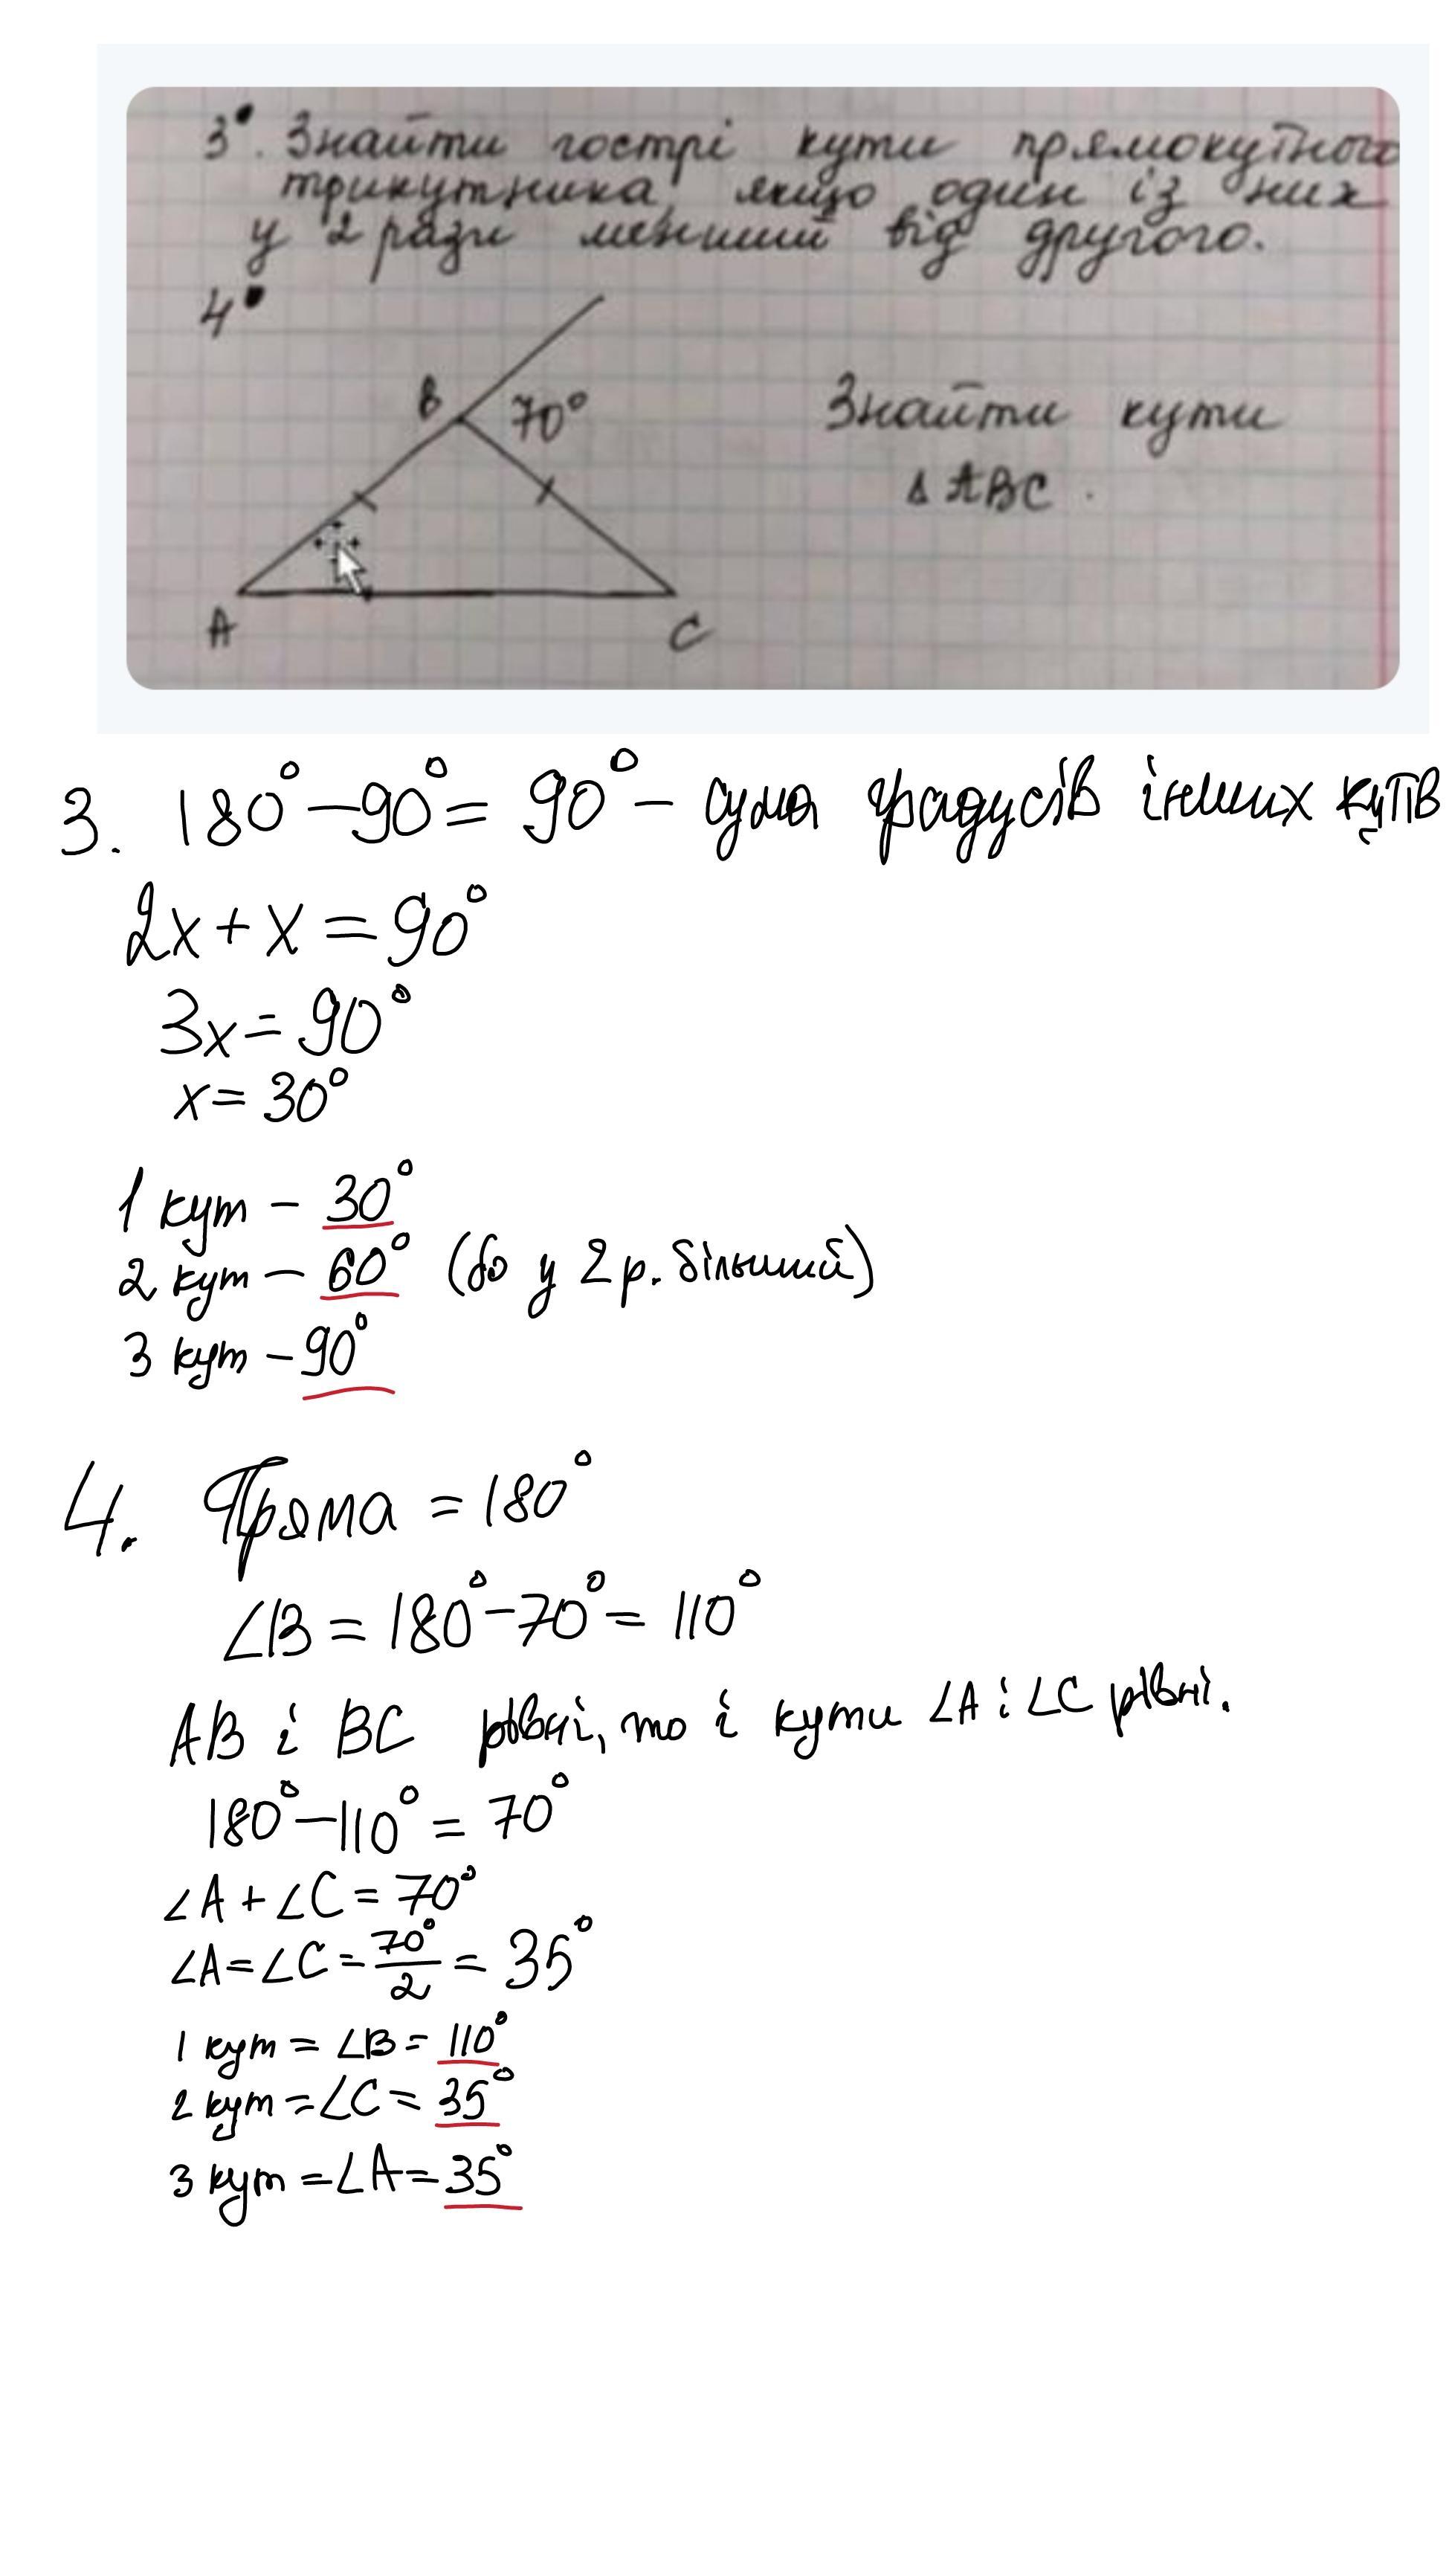 3°. Знайти гострі кути прямокутного
трикутника, якщо один із них
у 2 рази менший від другого.
4°
B 70°
Знайти кути
Δ ABC.
A C
3. 180° - 90° = 90° - сума градусів інших кутів
2x + x = 90°
3x = 90°
x = 30°
1 кут - 30°
2 кут - 60° (бо у 2 р. більший)
3 кут - 90°
4. Пряма = 180°
∠B = 180° - 70° = 110°
AB і BC рівні, то і кути ∠A і ∠C рівні.
180° - 110° = 70°
∠A + ∠C = 70°
∠A = ∠C = 70°/2 = 35°
1 кут = ∠B = 110°
2 кут = ∠C = 35°
3 кут = ∠A = 35°